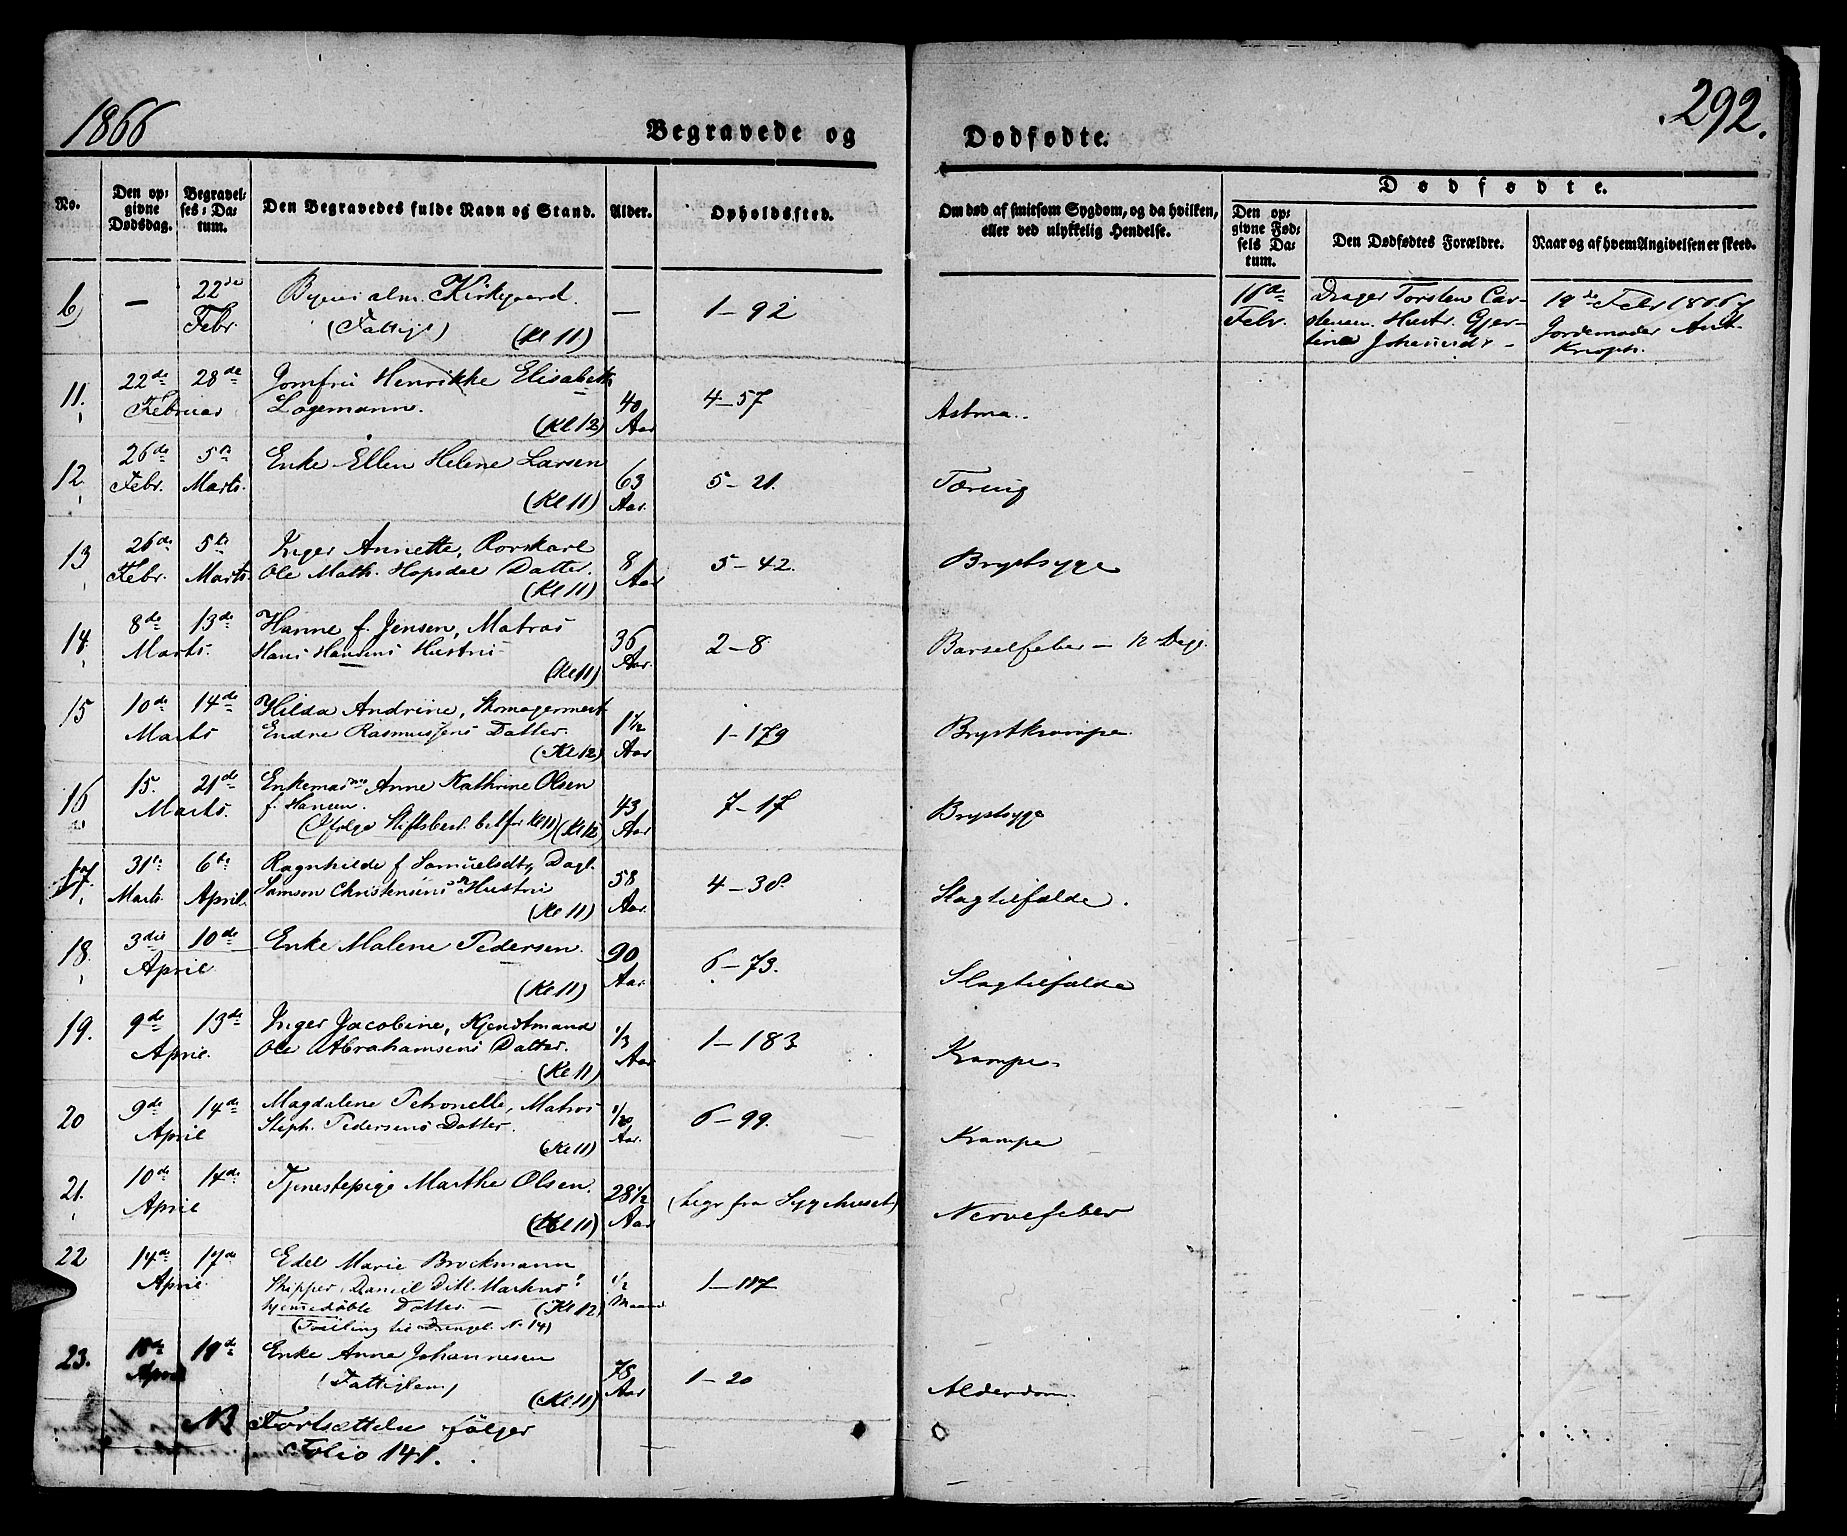 1866
Begravede og
Dødfødte.
.292.
No.
Den opgivne Dødsdag.
Begravelses-Datum.
Den Begravedes fulde Navn og Stand.
Alder.
Opholdssted.
Om død af smitsom Sygdom, og da hvilken, eller ved ulykkelig Hendelse.
Dødfødte.
Den opgivne Fødsels Datum.
Den Dødfødtes Forældre.
Naar og af hvem Angivelsen er skeed.
6 — 22de Byens alm. Kirkegaard. — 1-92
Febr. (Fattigl) (Kl 11)
Febr. Drager Torsten Carstensen. Hustr. Gjertine 19de Febr 1866 Jordemoder
11. 22de 28de Jomfru Henrikke Elisabeth
Februar Logemann. 40 4-57 Astma.
(Kl 12) Aar
12. 26de 5te Enke Ellen Helene Larsen
Febr. Marts. 63 5-21. Tæring
(Kl 11) Aar.
13 26de 5te Inger Annette, Rorskarl
Febr. Marts. Ole Math. Hopsdal Datter. 8 5-42. Brystsyge
(Kl 11) Aar
14. 8de 13de Hanne f. Jensen, Matros
Marts. Hans Hansens Hustru 36 2-8. Barselfeber — 12 Dage
(Kl 11) Aar.
15 10de 14de Hilda Andrine, Skomagermest
Marts Endre Rasmussens Datter. 1 1/2 1-179 Brystkrampe
(Kl 12) Aar
16 15. 21de Enkemad. Anne Kathrine Olsen
Marts. f. Hansen. 43 7-17 Brystsyge
(Ifølge Stiftsbest. bet for Kl 11) (Kl 12) Aar
17. 31te 6te Ragnhilde f Samuelsdtr, Dagl.
Marts. April. Samson Christensens Hustru 58 4-38. Slagtilfælde.
(Kl 11) Aar.
18. 3die 10de Enke Malene Pedersen. 90
April 6-73. Slagtilfælde
(Kl 11) Aar.
19. 9de 13de Inger Jacobine, Kjendtmand
April. Ole Abrahamsens Datter. 1/3 1-183 Krampe
(Kl 11) Aar
20 9de 14de Magdalene Petronelle, Matros
April Steph. Pedersens Datter. 1/20 6-99. Krampe
(Kl 11) Aar.
21. 10de 14de Tjenestepige Marthe Olsen. 28 1/2 (begr fra Sygehuset)
April (Kl 11) Aar Nervefeber
22 14de 17de Edel Marie Brockmann
April. Skipper Daniel Ditl. Martens 1/2 1-117
hjemmedøbte Datter — (Kl 12) Maaned
(Tvilling til Drengel. No 14)
23. 19de Enke Anne Johannesen
April (Fattiglem) 78 1-20 Alderdom.
(Kl 11) Aar
NB Fortsættelse følger
Folio 141.